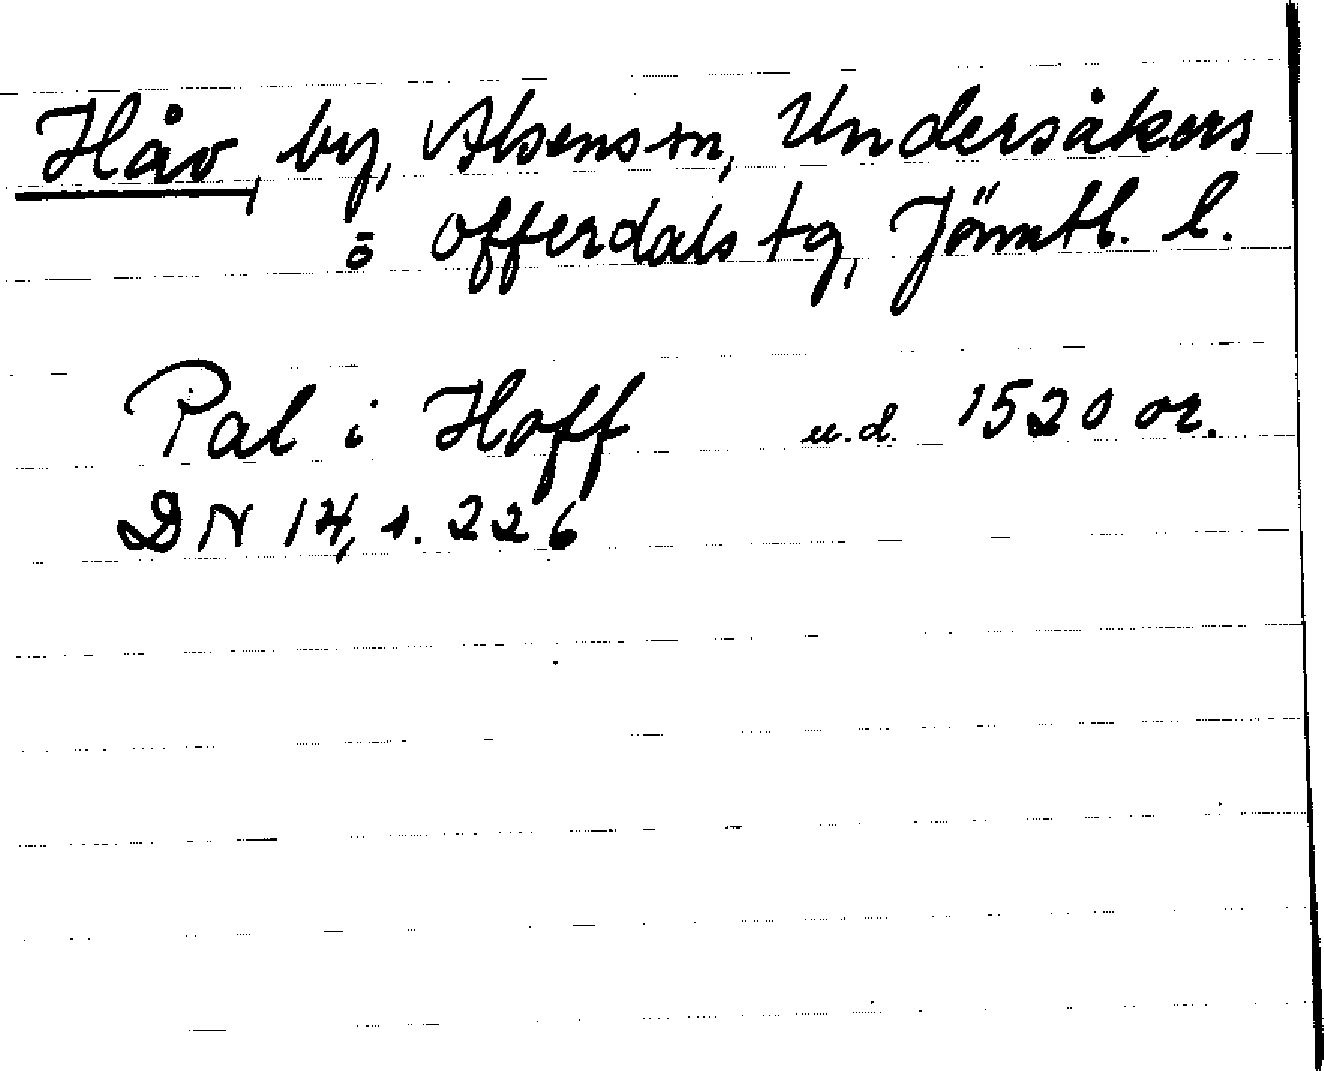 Håv, by, Alsens sn, Undersåkers
o Offerdals tg, Jämtl. l.
Pal i Hoff u.d. 1520 or.
DN 14, s. 226